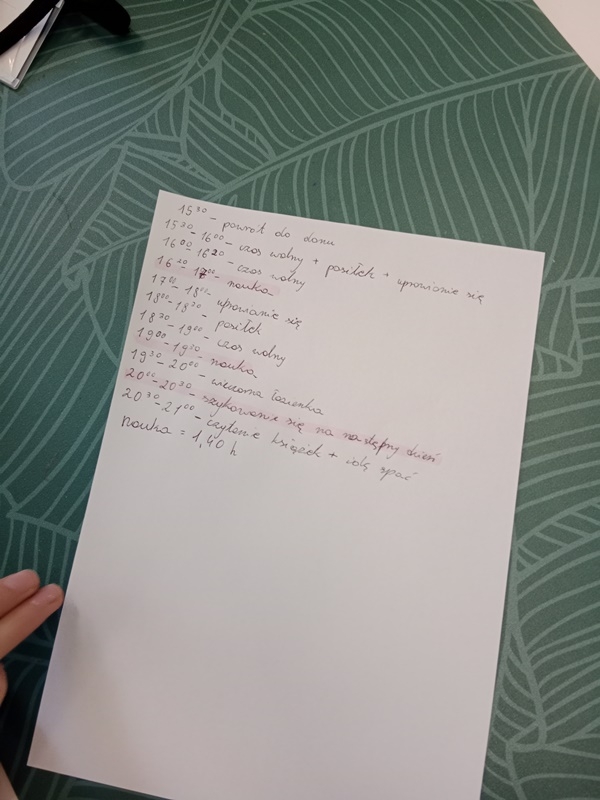 15³⁰ - powrót do domu
15³⁰ - 16⁰⁰ - czas wolny + posiłek + uprawianie się
16⁰⁰ - 16²⁰ - czas wolny
16²⁰ - 17⁰⁰ - nauka
17⁰⁰ - 18⁰⁰ - uprawianie się
18⁰⁰ - 18³⁰ - posiłek
18³⁰ - 19⁰⁰ - czas wolny
19⁰⁰ - 19³⁰ - nauka
19³⁰ - 20⁰⁰ - wieczorna łazienka
20⁰⁰ - 20³⁰ - szykowanie się na następny dzień
20³⁰ - 21⁰⁰ - czytanie książek + idę spać
nauka = 1,40 h